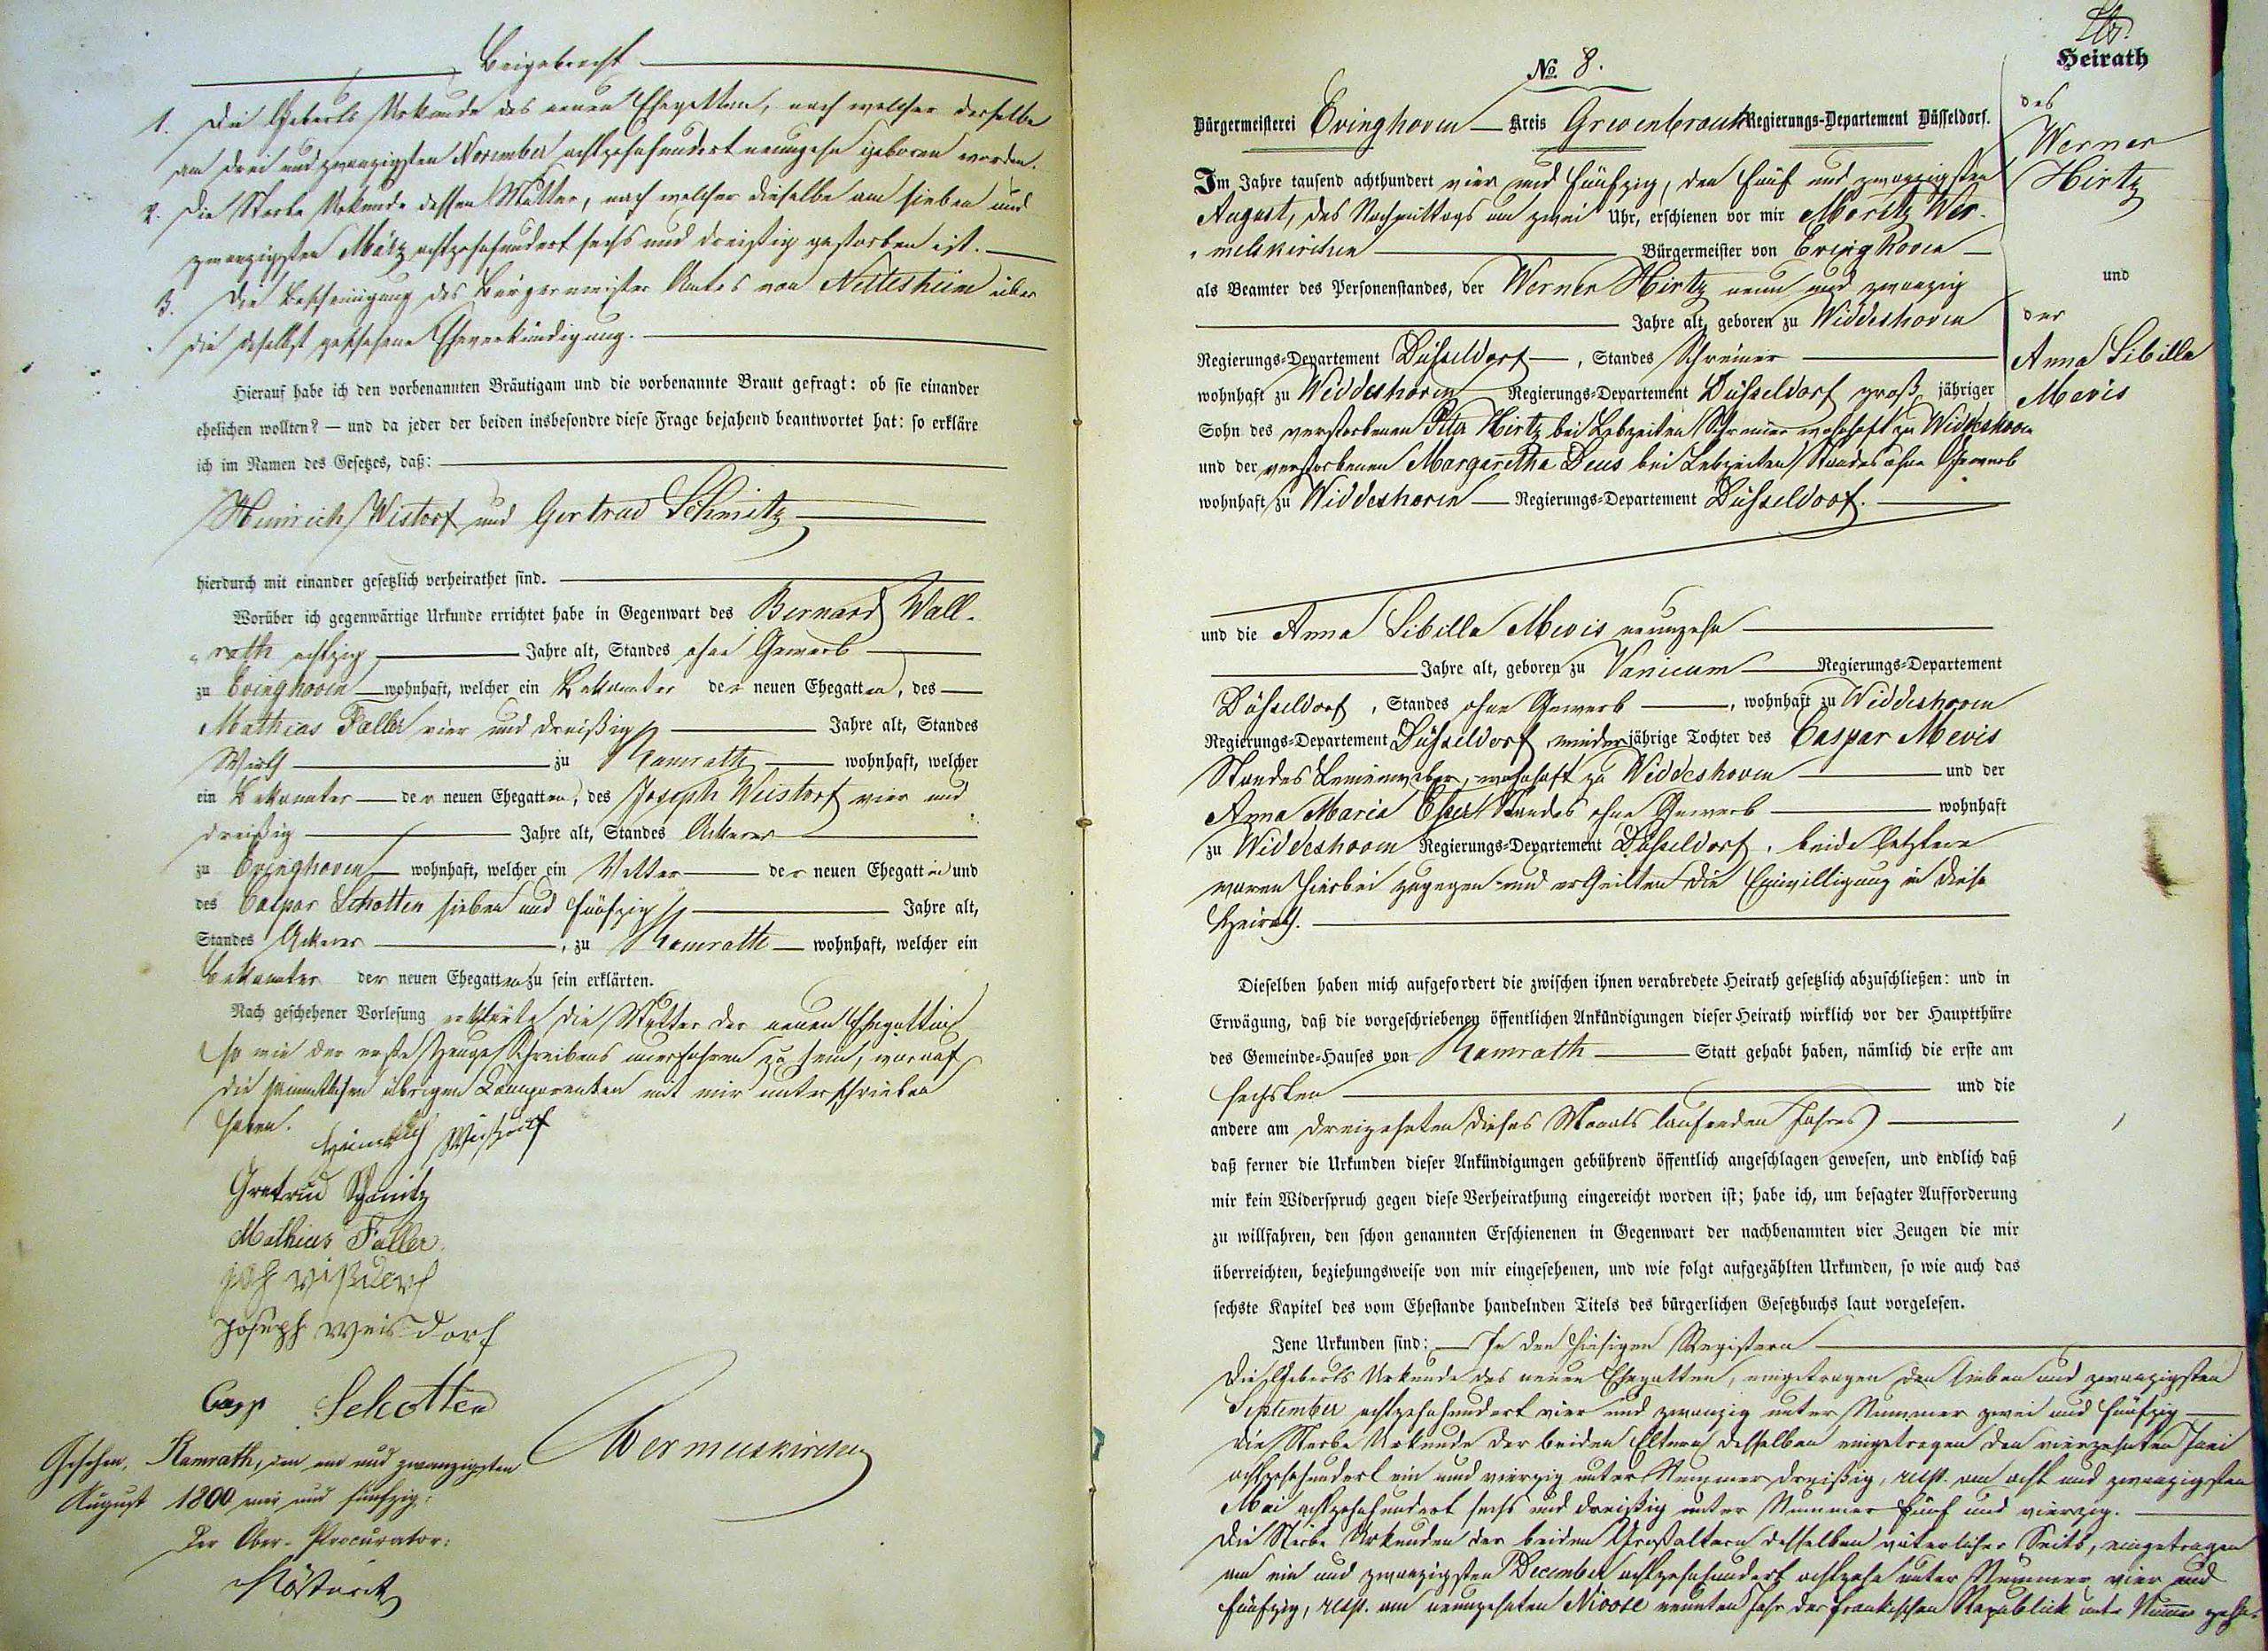 Beigebracht
1. Die Geburts Urkunde des neuen Ehegatten, nach welcher derselbe
am drei und zwanzigsten November achtzehnhundert neunzehn geboren worden.
2. Die Sterbe Urkunde dessen Mutter, nach welcher dieselbe am sieben und
zwanzigsten März achtzehnhundert sechs und dreißig gestorben ist.
3. Die Bescheinigung des Bürgermeister Amtes von Nettesheim über
die daselbst geschehene Eheverkündigung.
Hierauf habe ich den vorbenannten Bräutigam und die vorbenannte Braut gefragt: ob sie einander
ehelichen wollten? — und da jeder der beiden insbesondre diese Frage bejahend beantwortet hat: so erkläre
ich im Namen des Gesetzes, daß:
Heinrich Wistorf und Gertrud Schmitz
hierdurch mit einander gesetzlich verheirathet sind.
Worüber ich gegenwärtige Urkunde errichtet habe in Gegenwart des Bernard Wall-
rath achtzig Jahre alt, Standes ohne Gewerb
zu Evinghoven wohnhaft, welcher ein Bekannter der neuen Ehegatten, des
Mathias Faller vier und dreißig Jahre alt, Standes
Wirth zu Ramrath wohnhaft, welcher
ein Bekannter der neuen Ehegatten, des Joseph Weistorf vier und
dreißig Jahre alt, Standes Ackerer
zu Evinghoven wohnhaft, welcher ein Vetter der neuen Ehegattin und
des Caspar Schotten sieben und fünfzig Jahre alt,
Standes Ackerer, zu Ramrath wohnhaft, welcher ein
Bekannter der neuen Ehegatten zu sein erklärten.
Nach geschehener Vorlesung erklärte die Mutter der neuen Ehegattin
so wie der erste Zeuge Schreibens unerfahren zu sein, worauf
die sämmtlichen übrigen Comparenten mit mir unterschrieben
haben.
Heinrich Wisdorf
Gertrud Schmitz
Mathias Faller
Joseph Weisdorf
Casp Schotten
Wermelskirchen
Gesehen, Ramrath, den ein und zwanzigsten
August 1800 vier und fünfzig:
Der Ober-Procurator:
No. 8.
Heirath
Bürgermeisterei Evinghoven Kreis Grevenbroich Regierungs-Departement Düsseldorf.
des
Werner
Hirtz
und
der
Anna Sibilla
Mevis
Im Jahre tausend achthundert vier und fünfzig, den fünf und zwanzigsten
August, des Nachmittags um zwei Uhr, erschienen vor mir Moritz Wer-
melskirchen Bürgermeister von Evinghoven
als Beamter des Personenstandes, der Werner Hirtz neun und zwanzig
Jahre alt, geboren zu Widdeshoven
Regierungs-Departement Düsseldorf, Standes Schreiner
wohnhaft zu Widdeshoven Regierungs-Departement Düsseldorf groß jähriger
Sohn des verstorbenen Peter Hirtz bei Lebzeiten Schreiner wohnhaft zu Widdeshoven
und der verstorbenen Margaretha Deus bei Lebzeiten Standes ohne Gewerb
wohnhaft zu Widdeshoven Regierungs-Departement Düsseldorf.
und die Anna Sibilla Mevis neunzehn
Jahre alt, geboren zu Vanicum Regierungs-Departement
Düsseldorf, Standes ohne Gewerb, wohnhaft zu Widdeshoven
Regierungs-Departement Düsseldorf minderjährige Tochter des Caspar Mevis
Standes Leineweber, wohnhaft zu Widdeshoven und der
Anna Maria Esser Standes ohne Gewerb wohnhaft
zu Widdeshoven Regierungs-Departement Düsseldorf, beide letztere
waren hierbei zugegen und ertheilten die Einwilligung in diese
Heirath.
Dieselben haben mich aufgefordert die zwischen ihnen verabredete Heirath gesetzlich abzuschließen: und in
Erwägung, daß die vorgeschriebenen öffentlichen Ankündigungen dieser Heirath wirklich vor der Hauptthüre
des Gemeinde-Hauses von Ramrath Statt gehabt haben, nämlich die erste am
sechsten und die
andere am dreizehnten dieses Monats laufenden Jahres
daß ferner die Urkunden dieser Ankündigungen gebührend öffentlich angeschlagen gewesen, und endlich daß
mir kein Widerspruch gegen diese Verheirathung eingereicht worden ist; habe ich, um besagter Aufforderung
zu willfahren, den schon genannten Erschienenen in Gegenwart der nachbenannten vier Zeugen die mir
überreichten, beziehungsweise von mir eingesehenen, und wie folgt aufgezählten Urkunden, so wie auch das
sechste Kapitel des vom Ehestande handelnden Titels des bürgerlichen Gesetzbuchs laut vorgelesen.
Jene Urkunden sind: In den hiesigen Registern
Die Geburts Urkunde des neuen Ehegatten, eingetragen den sieben und zwanzigsten
September achtzehnhundert vier und zwanzig unter Nummer zwei und fünfzig
Die Sterbe Urkunde der beiden Eltern desselben eingetragen den vierzehnten Juni
achtzehnhundert ein und vierzig unter Nummer dreißig, resp. am acht und zwanzigsten
Mai achtzehnhundert sechs und dreißig unter Nummer fünf und vierzig.
Die Sterbe Urkunden der beiden Großeltern desselben väterlicher Seits, eingetragen
am ein und zwanzigsten December achtzehnhundert achtzehn unter Nummer vier und
fünfzig, resp. am neunzehnten Nivose neunten Jahr der fränkischen Republick unter Nummer zehn.